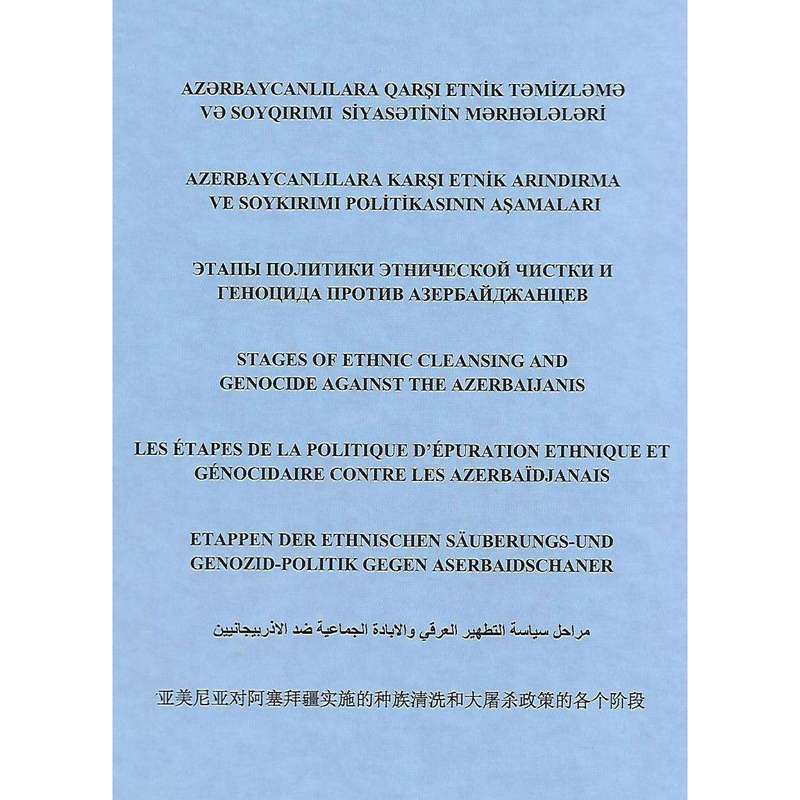 AZƏRBAYCANLILARA QARŞI ETNİK TƏMİZLƏMƏ
VƏ SOYQIRIMI SİYASƏTİNİN MƏRHƏLƏLƏRİ
AZERBAYCANLILARA KARŞI ETNİK ARINDIRMA
VE SOYKIRIMI POLİTİKASININ AŞAMALARI
ЭТАПЫ ПОЛИТИКИ ЭТНИЧЕСКОЙ ЧИСТКИ И
ГЕНОЦИДА ПРОТИВ АЗЕРБАЙДЖАНЦЕВ
STAGES OF ETHNIC CLEANSING AND
GENOCIDE AGAINST THE AZERBAIJANIS
LES ÉTAPES DE LA POLITIQUE D’ÉPURATION ETHNIQUE ET
GÉNOCIDAIRE CONTRE LES AZERBAÏDJANAIS
ETAPPEN DER ETHNISCHEN SÄUBERUNGS-UND
GENOZID-POLITIK GEGEN ASERBAIDSCHANER
مراحل سياسة التطهير العرقي والابادة الجماعية ضد الاذربيجانيين
亚美尼亚对阿塞拜疆实施的种族清洗和大屠杀政策的各个阶段